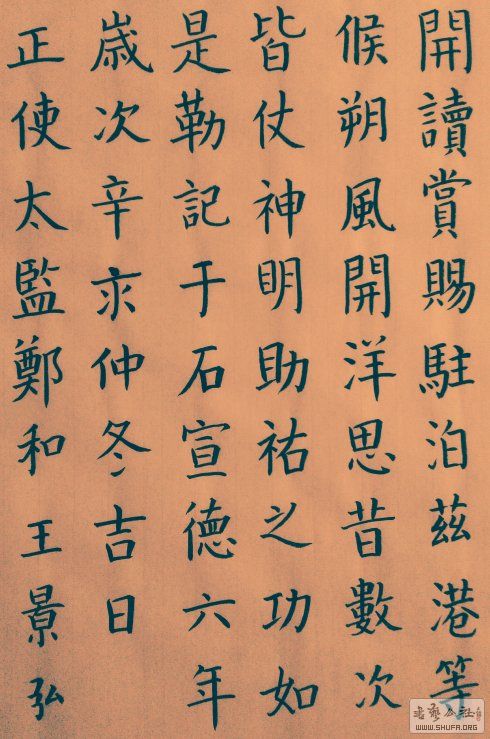 開讀賞賜駐泊茲港等
候朔風開洋思昔數次
皆仗神明助祐之功如
是勒記于石宣德六年
歲次辛亥仲冬吉日
正使太監鄭和 王景弘
WWW.SHUFA.ORG